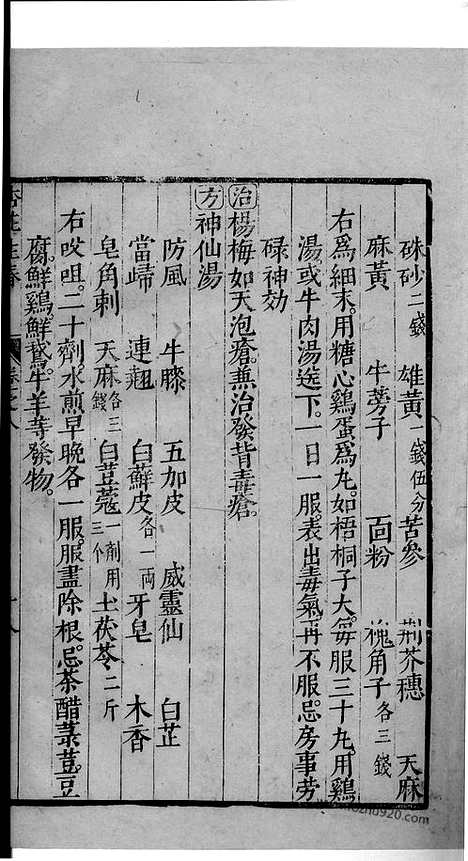 硃砂二錢 雄黃一錢伍分 苦參 荆芥穗 天麻
麻黃 牛蒡子 囬粉 槐角子各三錢
右爲細末。用糖心鷄蛋爲丸。如梧桐子大。每服三十丸。用鷄
湯或牛肉湯送下。一日一服。表出毒氣。再不服。忌房事勞
碌神効
治楊梅如天泡瘡。兼治發背毒瘡。
方神仙湯
防風 牛膝 五加皮 威靈仙 白芷
當歸 連翹 白蘚皮各一兩 牙皂 木香
皂角刺 天麻各三錢 白荳蔻一劑用三个 土茯苓二斤
右㕮咀。二十劑。水煎。早晚各一服。服盡除根。忌茶醋菉荳。豆
腐。鮮鷄。鮮鵝。牛羊等發物。